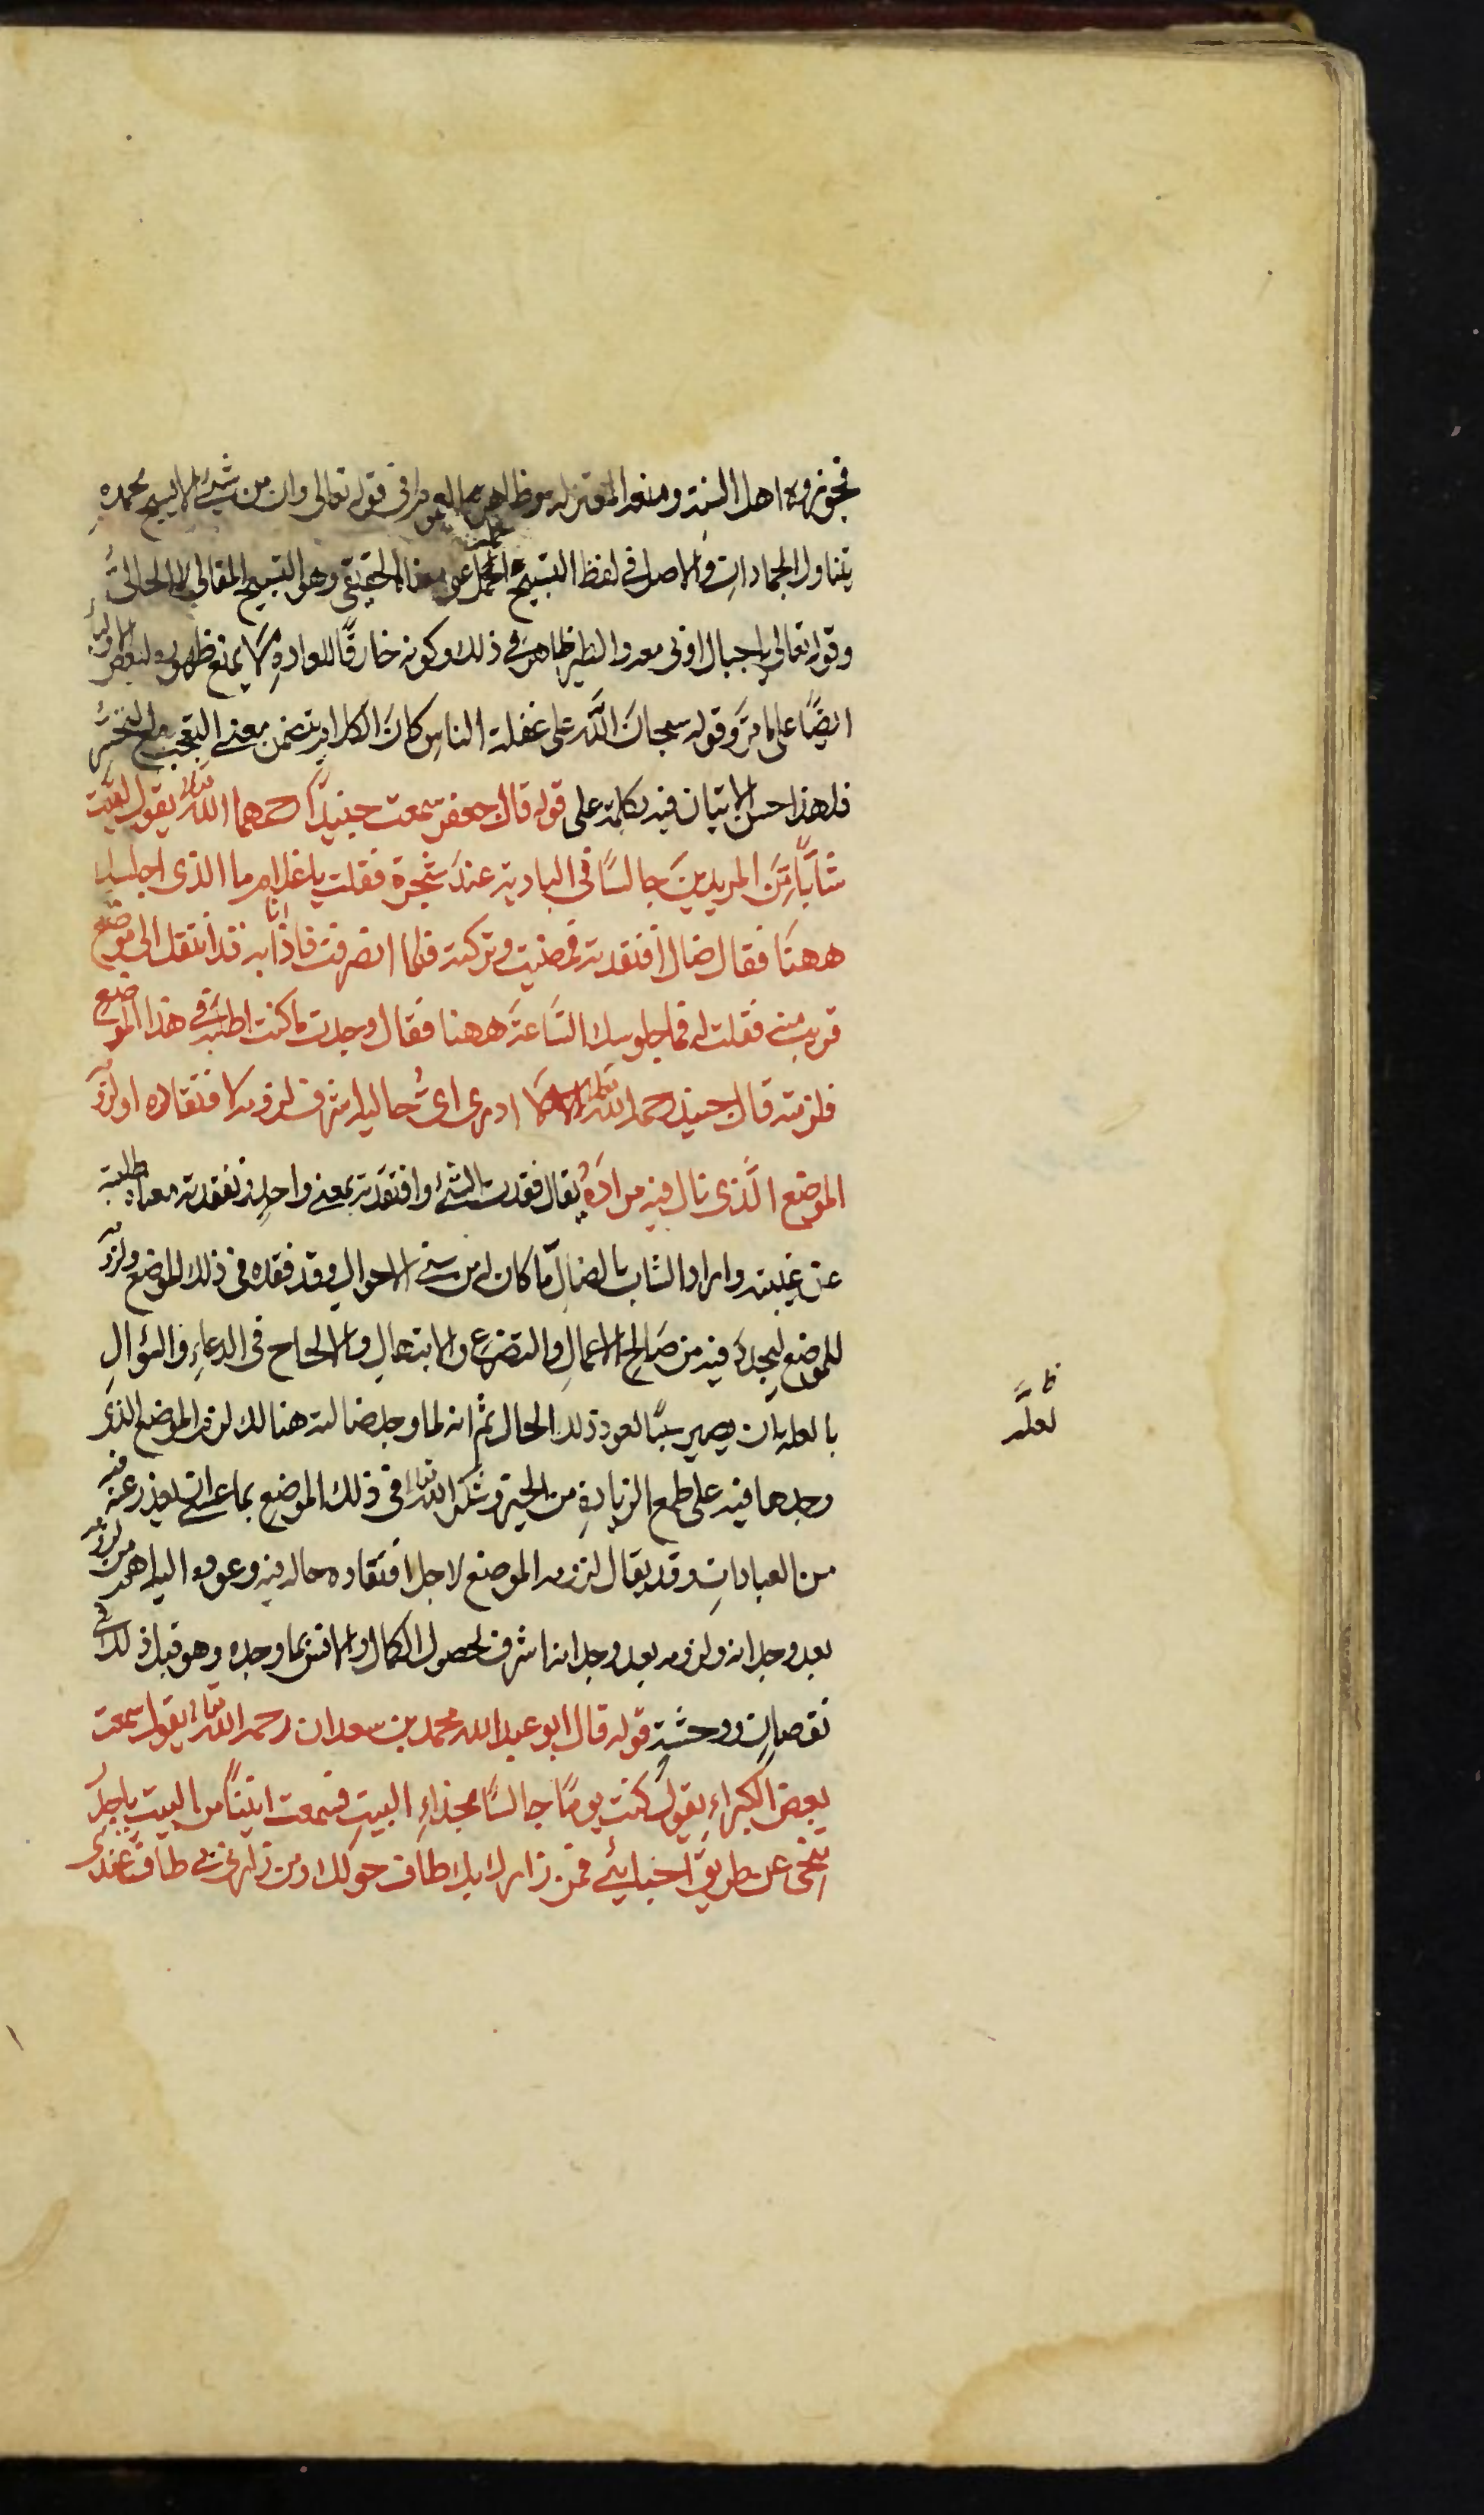 فجوزوه اهل السنة ومنعه المعتزلة وظاهر العموم في قوله تعالى وان من شيئ الا يسبح بحمده
يتناول الجمادات والاصل في لفظ التسبيح الحمل على معناه الحقيقي وهو التسبيح المقالي لا الحالي
وقوله تعالى يا جبال اوبى معه والطير ظاهر في ذلك وكونه خارقًا للعادة لا يمنع ظهوره لبعض الاولياء
ايضًا على ما مرّ وقوله سبحان الله على غفلة الناس كان الكلام يتضمن معنى التعجب مع التحسر
فلهذا حسن الاتيان فيه بكلمة على قوله قال جعفر سمعت جنيدًا رحمهما الله تعالى يقول لقيت
شابًّا من المريدين جالسًا في البادية عند شجرة فقلت يا غلام ما الذى اجلسك
ههنا فقال ضال افتقدته فمضيت وتركته فلما انصرفت فاذا انا به قد انتقل الى موضع
قريب منى فقلت له فما جلوسك الساعة ههنا فقال وجدت ما كنت اطلبه في هذا الموضع
فلزمته قال جنيد رحمه الله تعالى لا ادرى اىُّ حاليه اشرف لزومه لافتقاده او لزومه
الموضع الَّذى نال فيه مرادَهُ يقال فقدت الشئ وافتقدته بمعنى واحد وتفقدته معناه طلبته
عن غيبته واراد الشاب بالضالّ ما كان له من سنى الاحوال وقد فقده فى ذلك الموضع ولزومه
للموضع ليجده فيه من صالح الاعمال والتضرع والابتهال والالحاح فى الدعاء والسؤال
بالعلة بان يصير سببًا لعود ذلك الحال ثم انه لما وجد ضالته هنالك لزم الموضع الذى
وجدها فيه على طمع الزيادة من الخير وشكر الله تعالى فى ذلك الموضع بما عسى ان يعذر عنه فيه
من العبادات وقد يقال لزومه الموضع لاجل افتقاده حاله فيه وعوده اليه اهم من لزومه
بعد وجدانه ولزومه بعد وجدانه اشرف لحصول الكمال والانس بما وجده وهو قبل ذلك في
نقصان ووحشة قوله قال ابو عبد الله محمد بن سعدان رحمه الله تعالى يقول سمعت
بعض الكبراء يقول كنت يومًا جالسًا بحذاء البيت فسمعت انينًا من البيت يا جدر
تنحى عن طريق احبايئ فمن زارك بك طاف حولك ومن زارنى بى طاف عندى
ظ
لعلّه